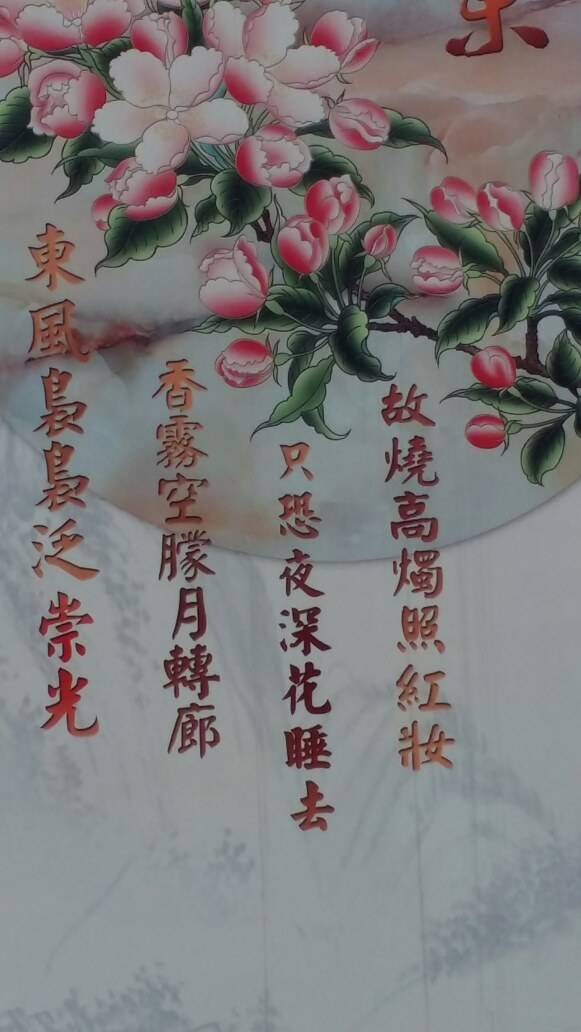 東風裊裊泛崇光
香霧空朦月轉廊
只恐夜深花睡去
故燒高燭照紅妝